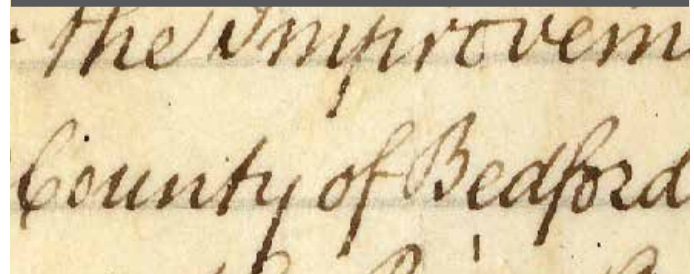 the Improvem
County of Bedford